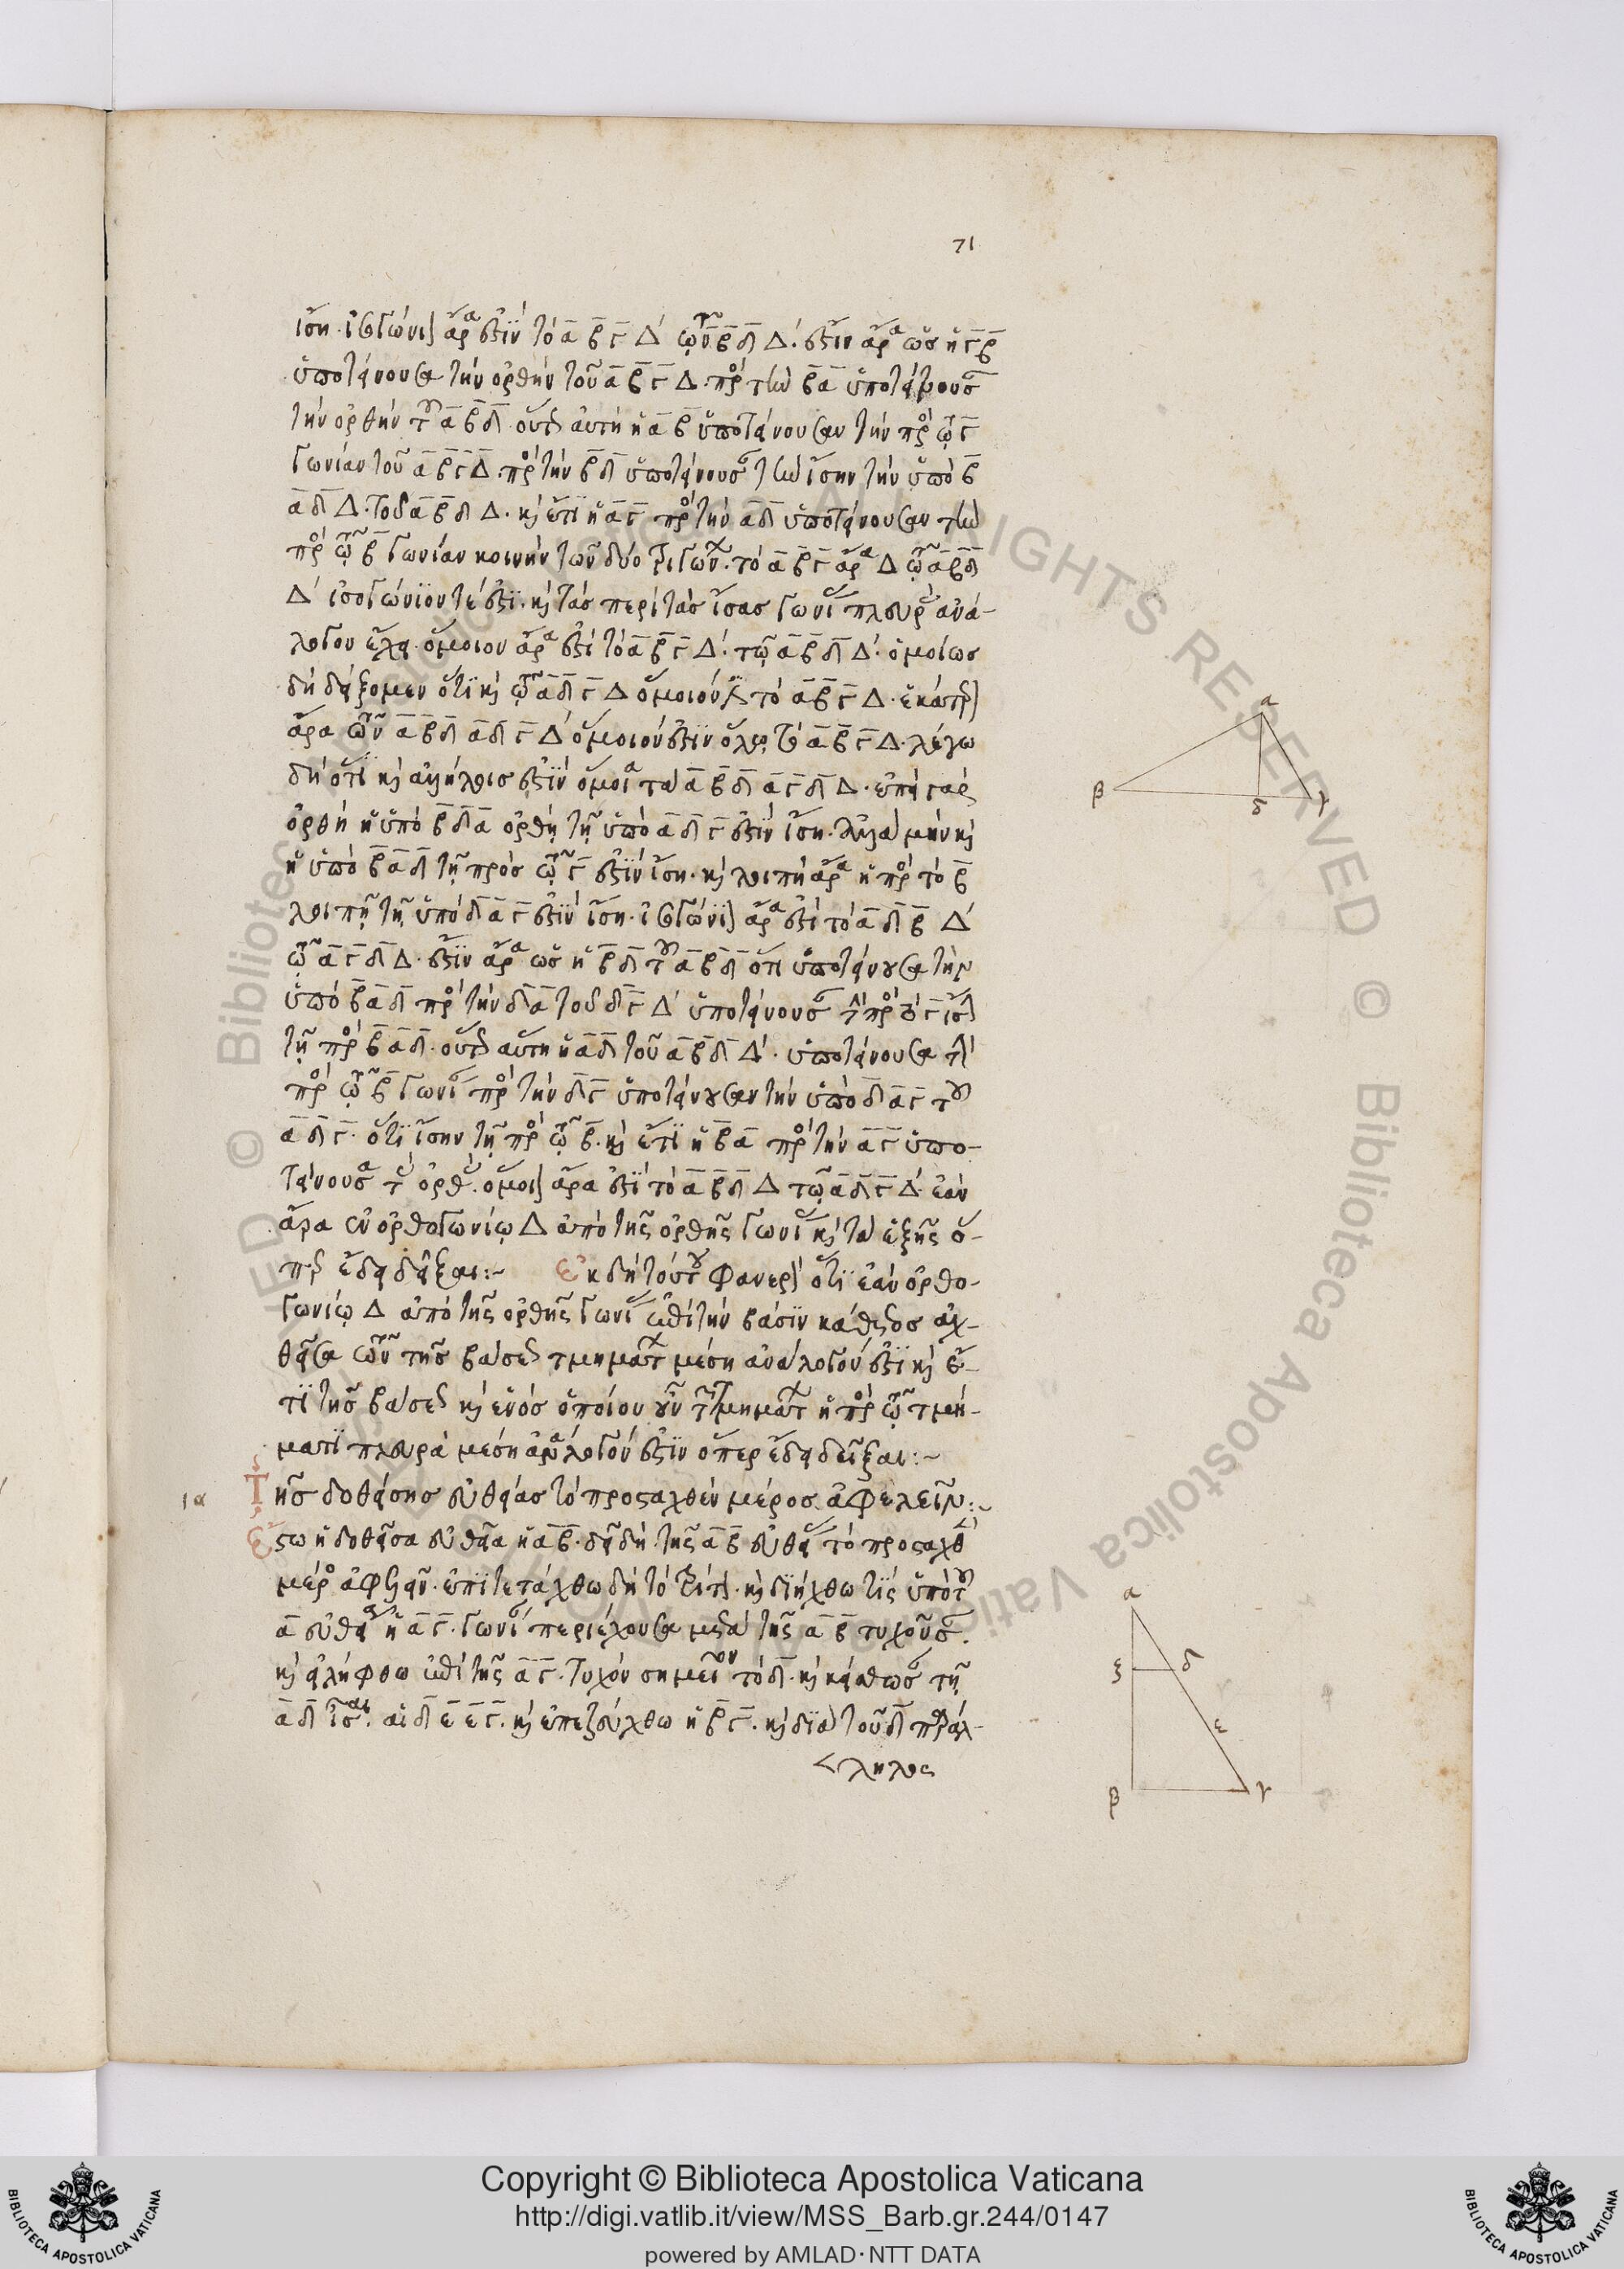 71
ἴση· ἰσογώνιον ἄρα ἐστὶν τὸ α β γ Δ τῷ α β δ Δ· ἔστιν ἄρα ὡς ἡ γ β
ὑποτείνουσα τὴν ὀρθὴν τοῦ α β γ Δ· πρὸς τὴν β α ὑποτείνουσαν
τὴν ὀρθὴν τοῦ α β δ· οὕτως αὐτὴ ἡ α β ὑποτείνουσαν τὴν πρὸς τῷ γ
γωνίαν τοῦ α β γ Δ· πρὸς τὴν β δ ὑποτείνουσαν τὴν ἴσην τὴν ὑπὸ β
α δ Δ· τοῦ α β δ Δ· καὶ ἔτι ἡ α γ πρὸς τὴν α δ ὑποτείνουσαν τὴν
πρὸς τῷ β γωνίαν κοινὴν τῶν δύο τριγώνων· τὸ α β γ ἄρα Δ τῷ α β δ
Δ ἰσογώνιόν τέ ἐστι· καὶ τὰς περὶ τὰς ἴσας γωνίας πλευρὰς ἀνά-
λογον ἔχει· ὅμοιον ἄρα ἐστὶ τὸ α β γ Δ· τῷ α β δ Δ· ὁμοίως
δὴ δείξομεν ὅτι καὶ τῷ α δ γ Δ ὅμοιόν ἐστι τὸ α β γ Δ· ἑκάτερον
ἄρα τῶν α β δ α δ γ Δ ὅμοιόν ἐστιν ὅλῳ τῷ α β γ Δ· λέγω
δὴ ὅτι καὶ ἀλλήλοις ἐστὶν ὅμοια τὰ α β δ α γ δ Δ· ἐπεὶ γὰρ
ὀρθὴ ἡ ὑπὸ β δ α ὀρθῇ τῇ ὑπὸ α δ γ ἐστὶν ἴση· ἀλλὰ μὴν καὶ
ἡ ὑπὸ β α δ τῇ πρὸς τῷ γ ἐστὶν ἴση· καὶ λοιπὴ ἄρα ἡ πρὸς τὸ β
λοιπῇ τῇ ὑπὸ δ α γ ἐστὶν ἴση· ἰσογώνιον ἄρα ἐστὶ τὸ α δ β Δ
τῷ α γ δ Δ· ἔστιν ἄρα ὡς ἡ β δ τοῦ α β δ ὅτι ὑποτείνουσα τὴν
ὑπὸ β α δ πρὸς τὴν δ α τοῦ δ γ Δ ὑποτείνουσαν τὴν πρὸς τὸ γ ἴσην
τῇ πρὸς β α δ· οὕτως αὕτη ἡ α δ τοῦ α β δ Δ· ὑποτείνουσα τὴν
πρὸς τῷ β γωνίαν πρὸς τὴν δ γ ὑποτείνουσαν τὴν ὑπὸ δ α γ τοῦ
α δ γ· ὅτι ἴσην τῇ πρὸς τῷ β· καὶ ἔτι ἡ β α πρὸς τὴν α γ ὑπο-
τείνουσα τὰς ὀρθάς· ὅμοιον ἄρα ἐστὶ τὸ α β δ Δ τῷ α δ γ Δ· ἐὰν
ἄρα ἐν ὀρθογωνίῳ Δ ἀπὸ τῆς ὀρθῆς γωνίας καὶ τὰ ἑξῆς ὅ-
περ ἔδει δεῖξαι:~ Ἐκ δὴ τούτου φανερὸν ὅτι ἐὰν ὀρθο-
γωνίῳ Δ ἀπὸ τῆς ὀρθῆς γωνίας ἐπὶ τὴν βάσιν κάθετος ἀχ-
θεῖσα τῶν τῆς βάσεως τμημάτων μέση ἀνάλογόν ἐστι καὶ ἔ-
τι τῆς βάσεως καὶ ἑνὸς ὁποίου οὖν τῶν τμημάτων ἡ πρὸς τῷ τμή-
ματι πλευρὰ μέση ἀνάλογόν ἐστιν ὅπερ ἔδει δεῖξαι:~
ια Τῆς δοθείσης εὐθείας τὸ προσταχθὲν μέρος ἀφελεῖν:~
Ἔστω ἡ δοθεῖσα εὐθεῖα ἡ α β· δεῖ δὴ τῆς α β εὐθείας τὸ προσταχθὲν
μέρος ἀφελεῖν· ἐπιτετάχθω δὴ τὸ τρίτον· καὶ διήχθω τις ὑπὸ τοῦ
α εὐθεῖα ἡ α γ· γωνίαν περιέχουσα μετὰ τῆς α β τυχοῦσαν·
καὶ εἰλήφθω ἐπὶ τῆς α γ· τυχὸν σημεῖον τὸ δ· καὶ κείσθωσαν τῇ
α δ ἴσαι· αἱ δ ε ε γ· καὶ ἐπεζεύχθω ἡ β γ· καὶ διὰ τοῦ δ παράλ-
ληλος
α
β
δ
γ
α
ξ
δ
ε
β
γ
© Biblioteca Apostolica Vaticana ALL RIGHTS RESERVED
Copyright © Biblioteca Apostolica Vaticana
http://digi.vatlib.it/view/MSS_Barb.gr.244/0147
powered by AMLAD·NTT DATA
BIBLIOTECA APOSTOLICA VATICANA
BIBLIOTECA APOSTOLICA VATICANA